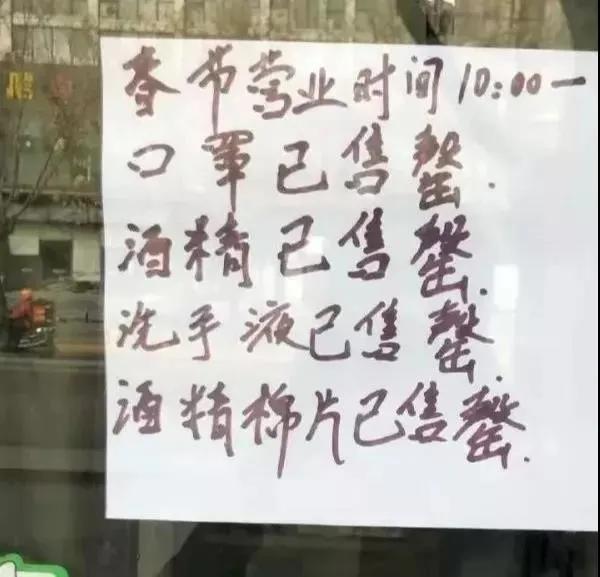 春节营业时间10:00一
口罩已售罄.
酒精已售罄.
洗手液已售罄.
酒精棉片已售罄.